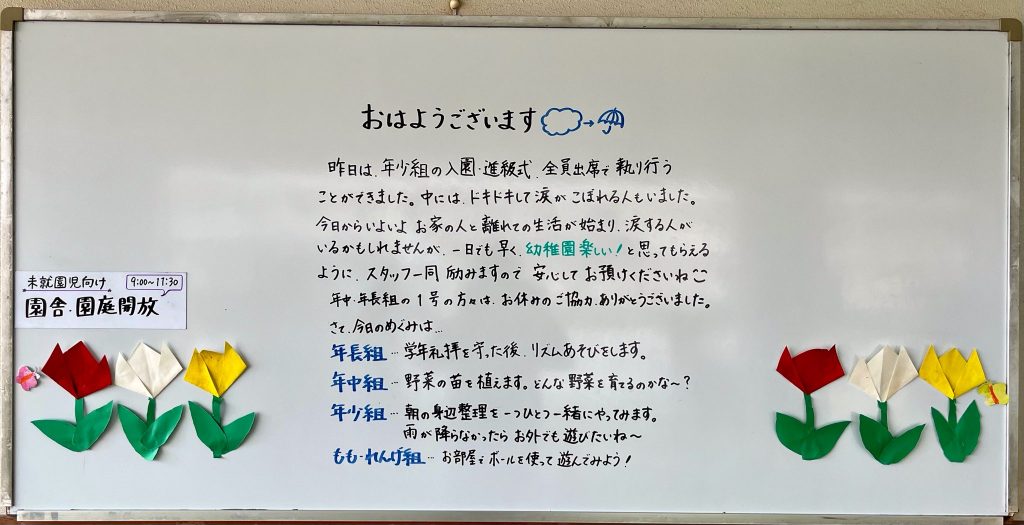 おはようございます
昨日は、年少組の入園・進級式、全員出席で執り行う
ことができました。中には、ドキドキして涙がこぼれる人もいました。
今日からいよいよお家の人と離れての生活が始まり、涙する人が
いるかもしれませんが、一日でも早く、幼稚園楽しい!と思ってもらえる
ように、スタッフ一同励みますので安心してお預けくださいね
年中・年長組の1号の方々は、お休みのご協力、ありがとうございました。
さて、今日のめぐみは…
年長組…学年礼拝を守った後、リズムあそびをします。
年中組…野菜の苗を植えます。どんな野菜を育てるのかな〜?
年少組…朝の身辺整理を一つひとつ一緒にやってみます。
雨が降らなかったらお外でも遊びたいね〜
もも・れんげ組…お部屋でボールを使って遊んでみよう!
未就園児向け 9:00~11:30
園舎・園庭開放